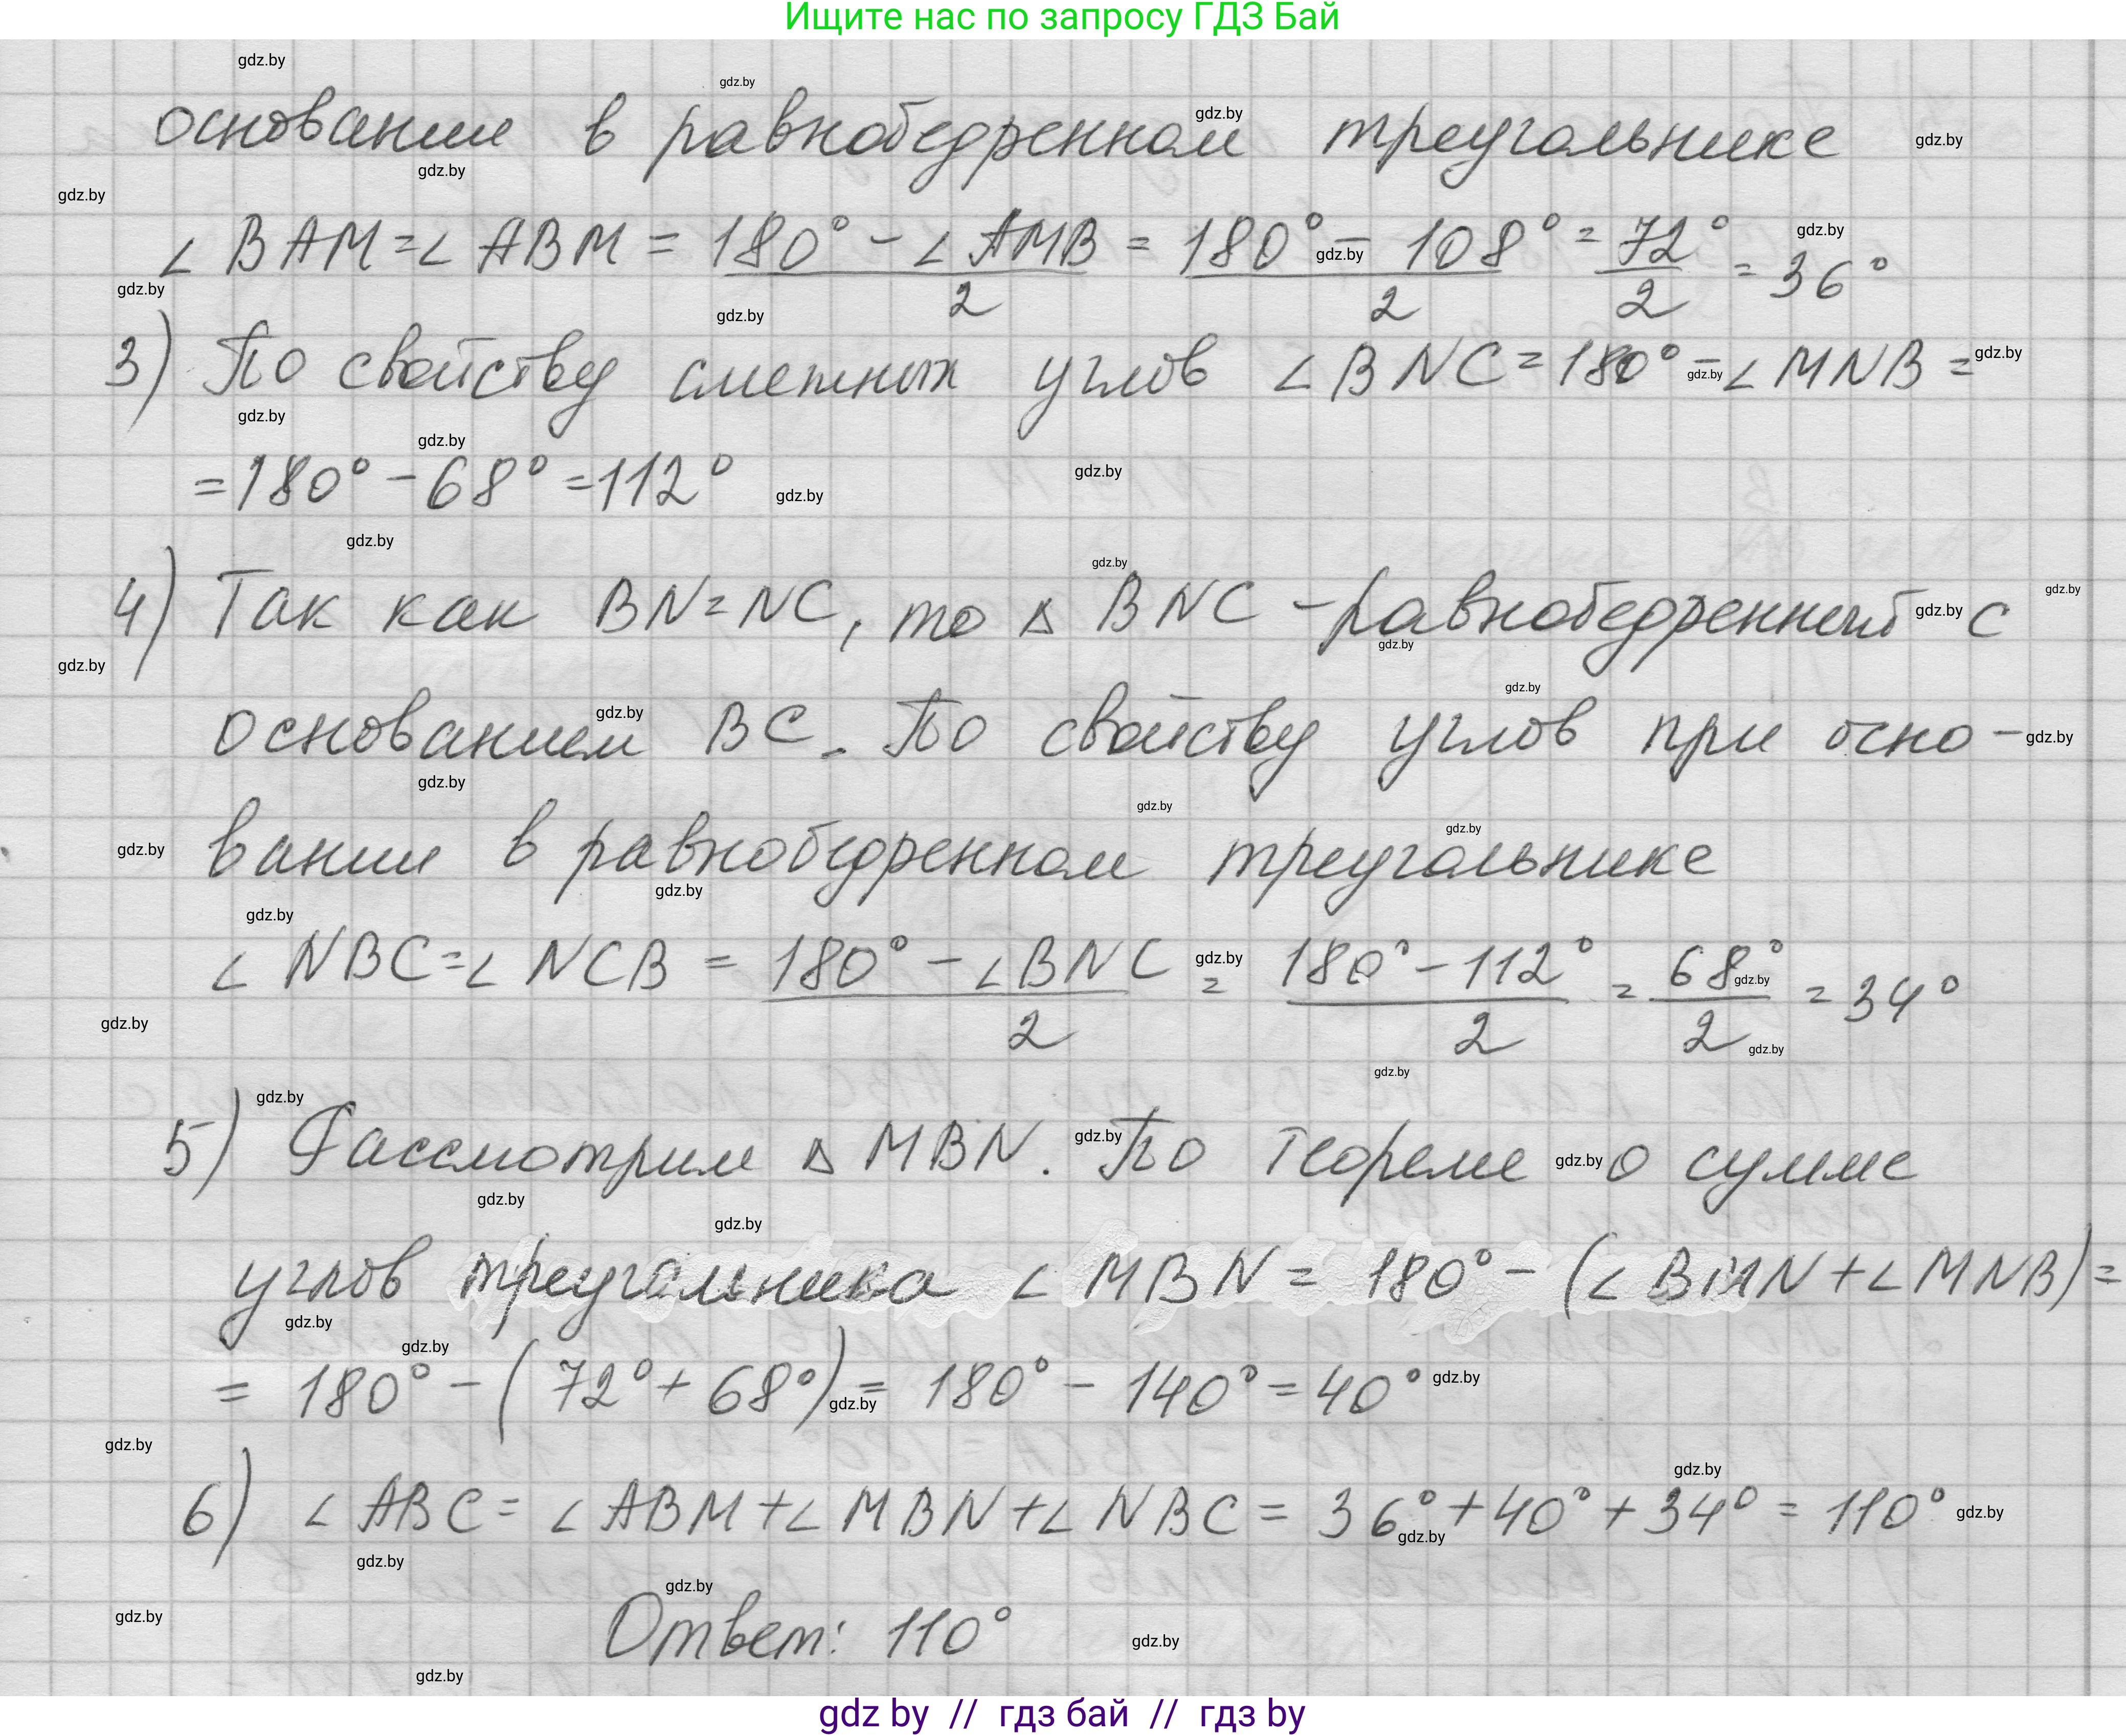 Ищите нас по запросу ГДЗ Бай
основании в равнобедренном треугольнике
∠BAM=∠ABM = (180° - ∠AMB)/2 = (180° - 108°)/2 = 72°/2 = 36°
3) По свойству смежных углов ∠BNC=180°-∠MNB=
=180°-68°=112°
4) Так как BN=NC, то △BNC - равнобедренный с
основанием BC. По свойству углов при осно-
вании в равнобедренном треугольнике
∠NBC=∠NCB = (180° - ∠BNC)/2 = (180° - 112°)/2 = 68°/2 = 34°
5) Рассмотрим △MBN. По теореме о сумме
углов треугольника ∠MBN = 180° - (∠BMN+∠MNB)=
= 180° - (72° + 68°) = 180° - 140° = 40°
6) ∠ABC = ∠ABM+∠MBN+∠NBC = 36°+40°+34° = 110°
Ответ: 110°
gdz by // гдз бай // гдз by